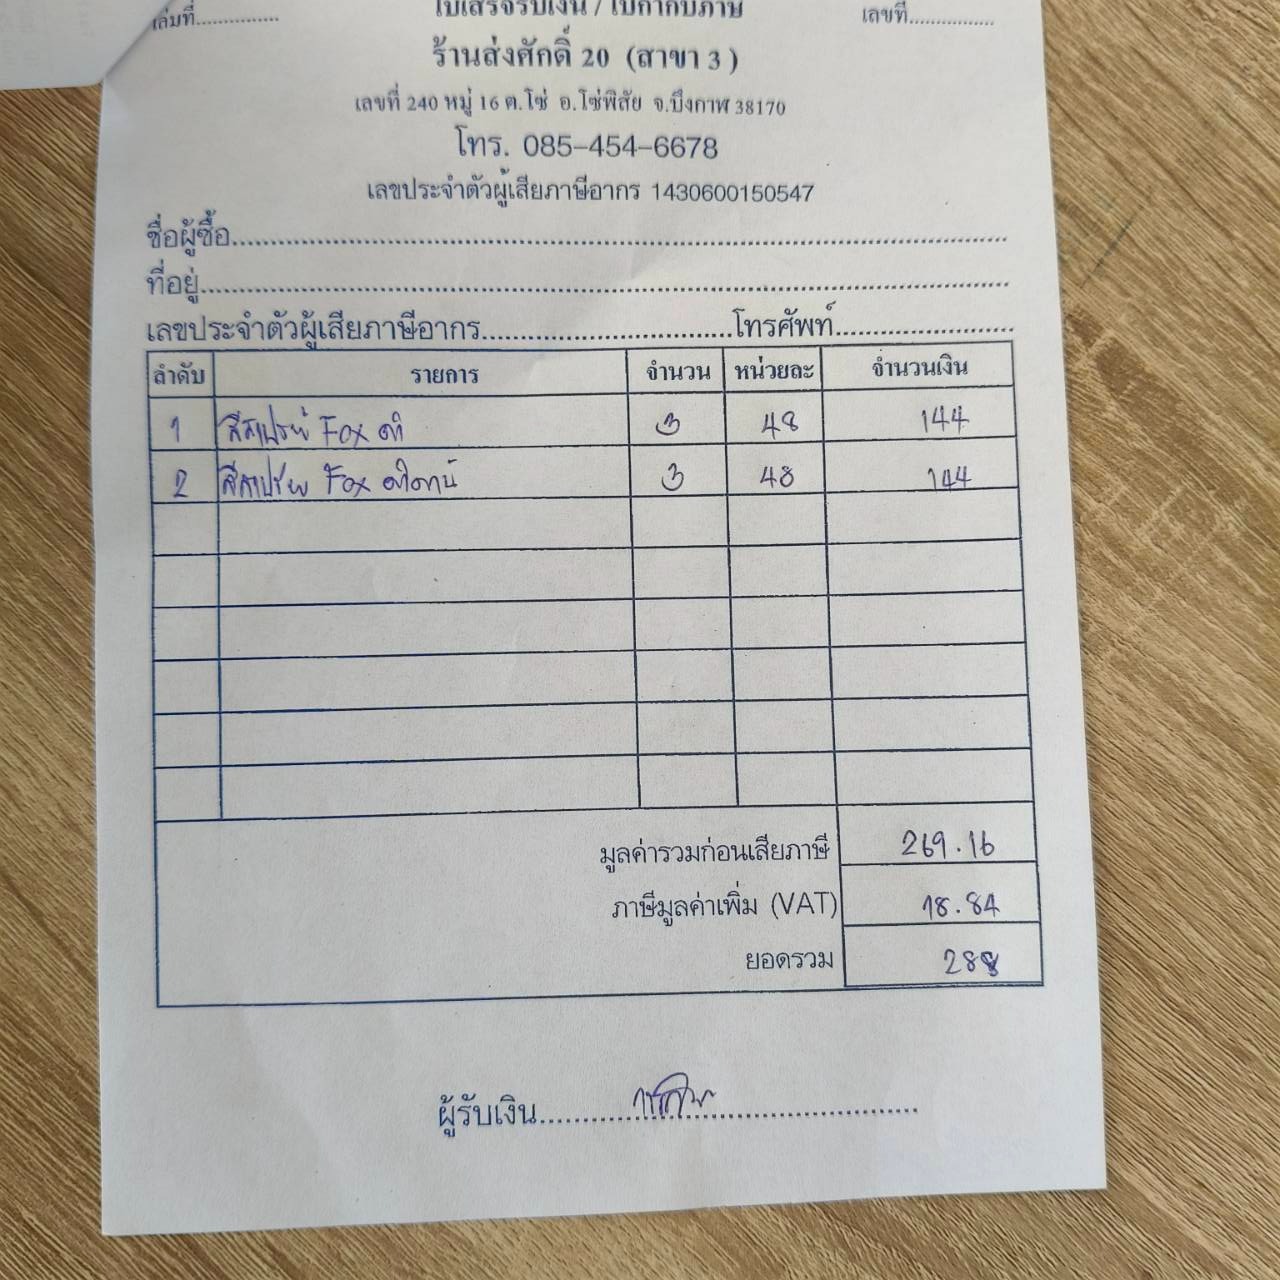 เล่มที่............... ใบเสร็จรับเงิน / ใบกำกับภาษี เลขที่...............
ร้านส่งศักดิ์ 20 (สาขา 3)
เลขที่ 240 หมู่ 16 ต.โซ่ อ.โซ่พิสัย จ.บึงกาฬ 38170
โทร. 085-454-6678
เลขประจำตัวผู้เสียภาษีอากร 1430600150547
ชื่อผู้ซื้อ...............
ที่อยู่...............
เลขประจำตัวผู้เสียภาษีอากร...............โทรศัพท์...............
ลำดับ รายการ จำนวน หน่วยละ จำนวนเงิน
1 สีสเปรย์ Fox ดำ 3 48 144
2 สีสเปรย์ Fox ดำด้าน 3 48 144
มูลค่ารวมก่อนเสียภาษี 269.16
ภาษีมูลค่าเพิ่ม (VAT) 18.84
ยอดรวม 288
ผู้รับเงิน...............